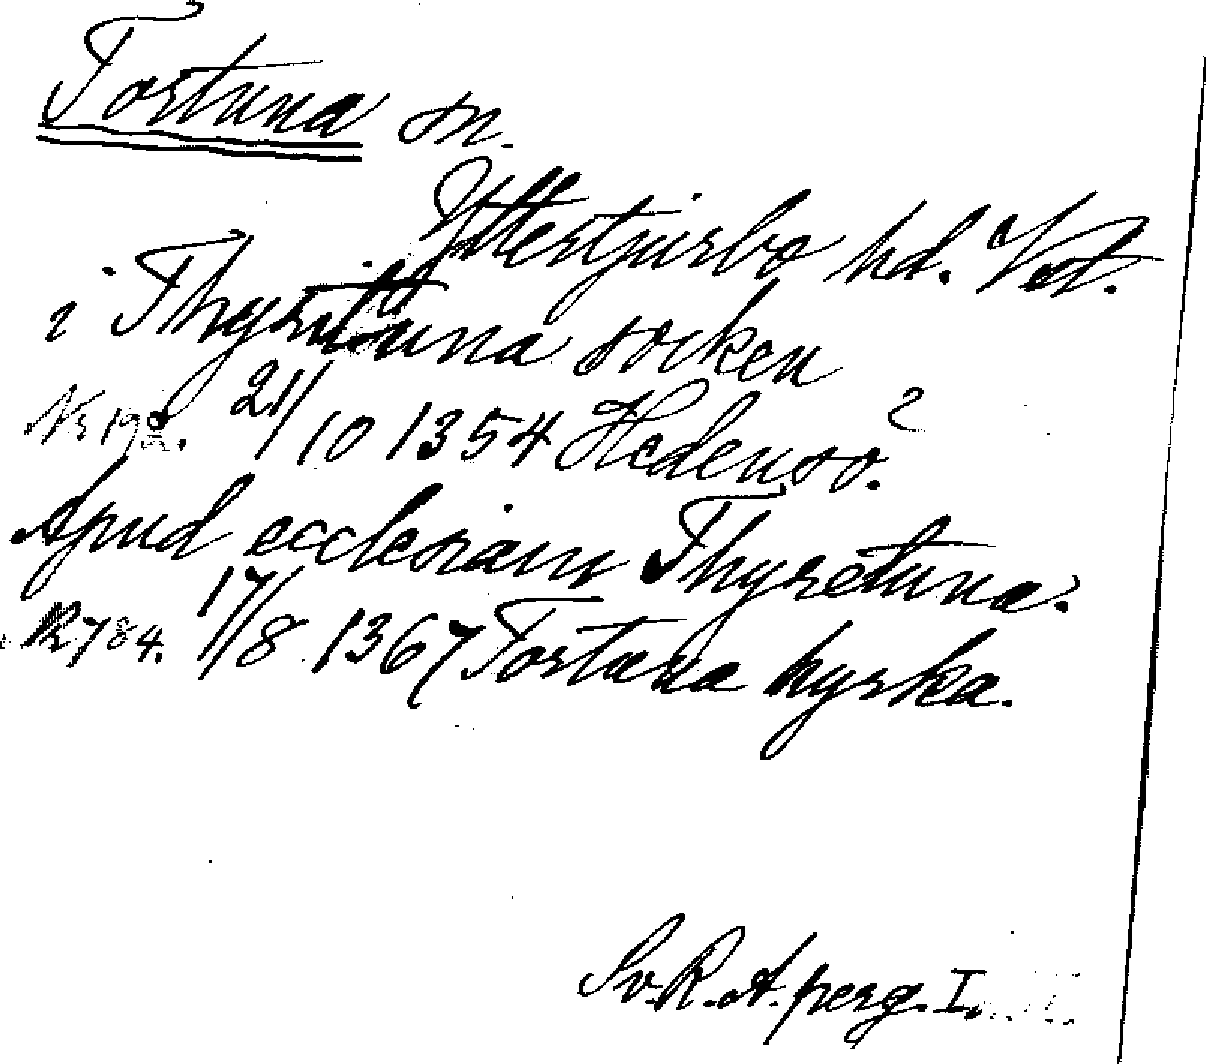 Tortuna sn.
Yttertjurbo hd. Vst.
i Thyrituna socken
21/10 1354 Hedensö.?
Apud ecclesiam Thyretuna.
R 784. 17/8 1367 Tortuna kyrka.
Sv. R. A. perg. I